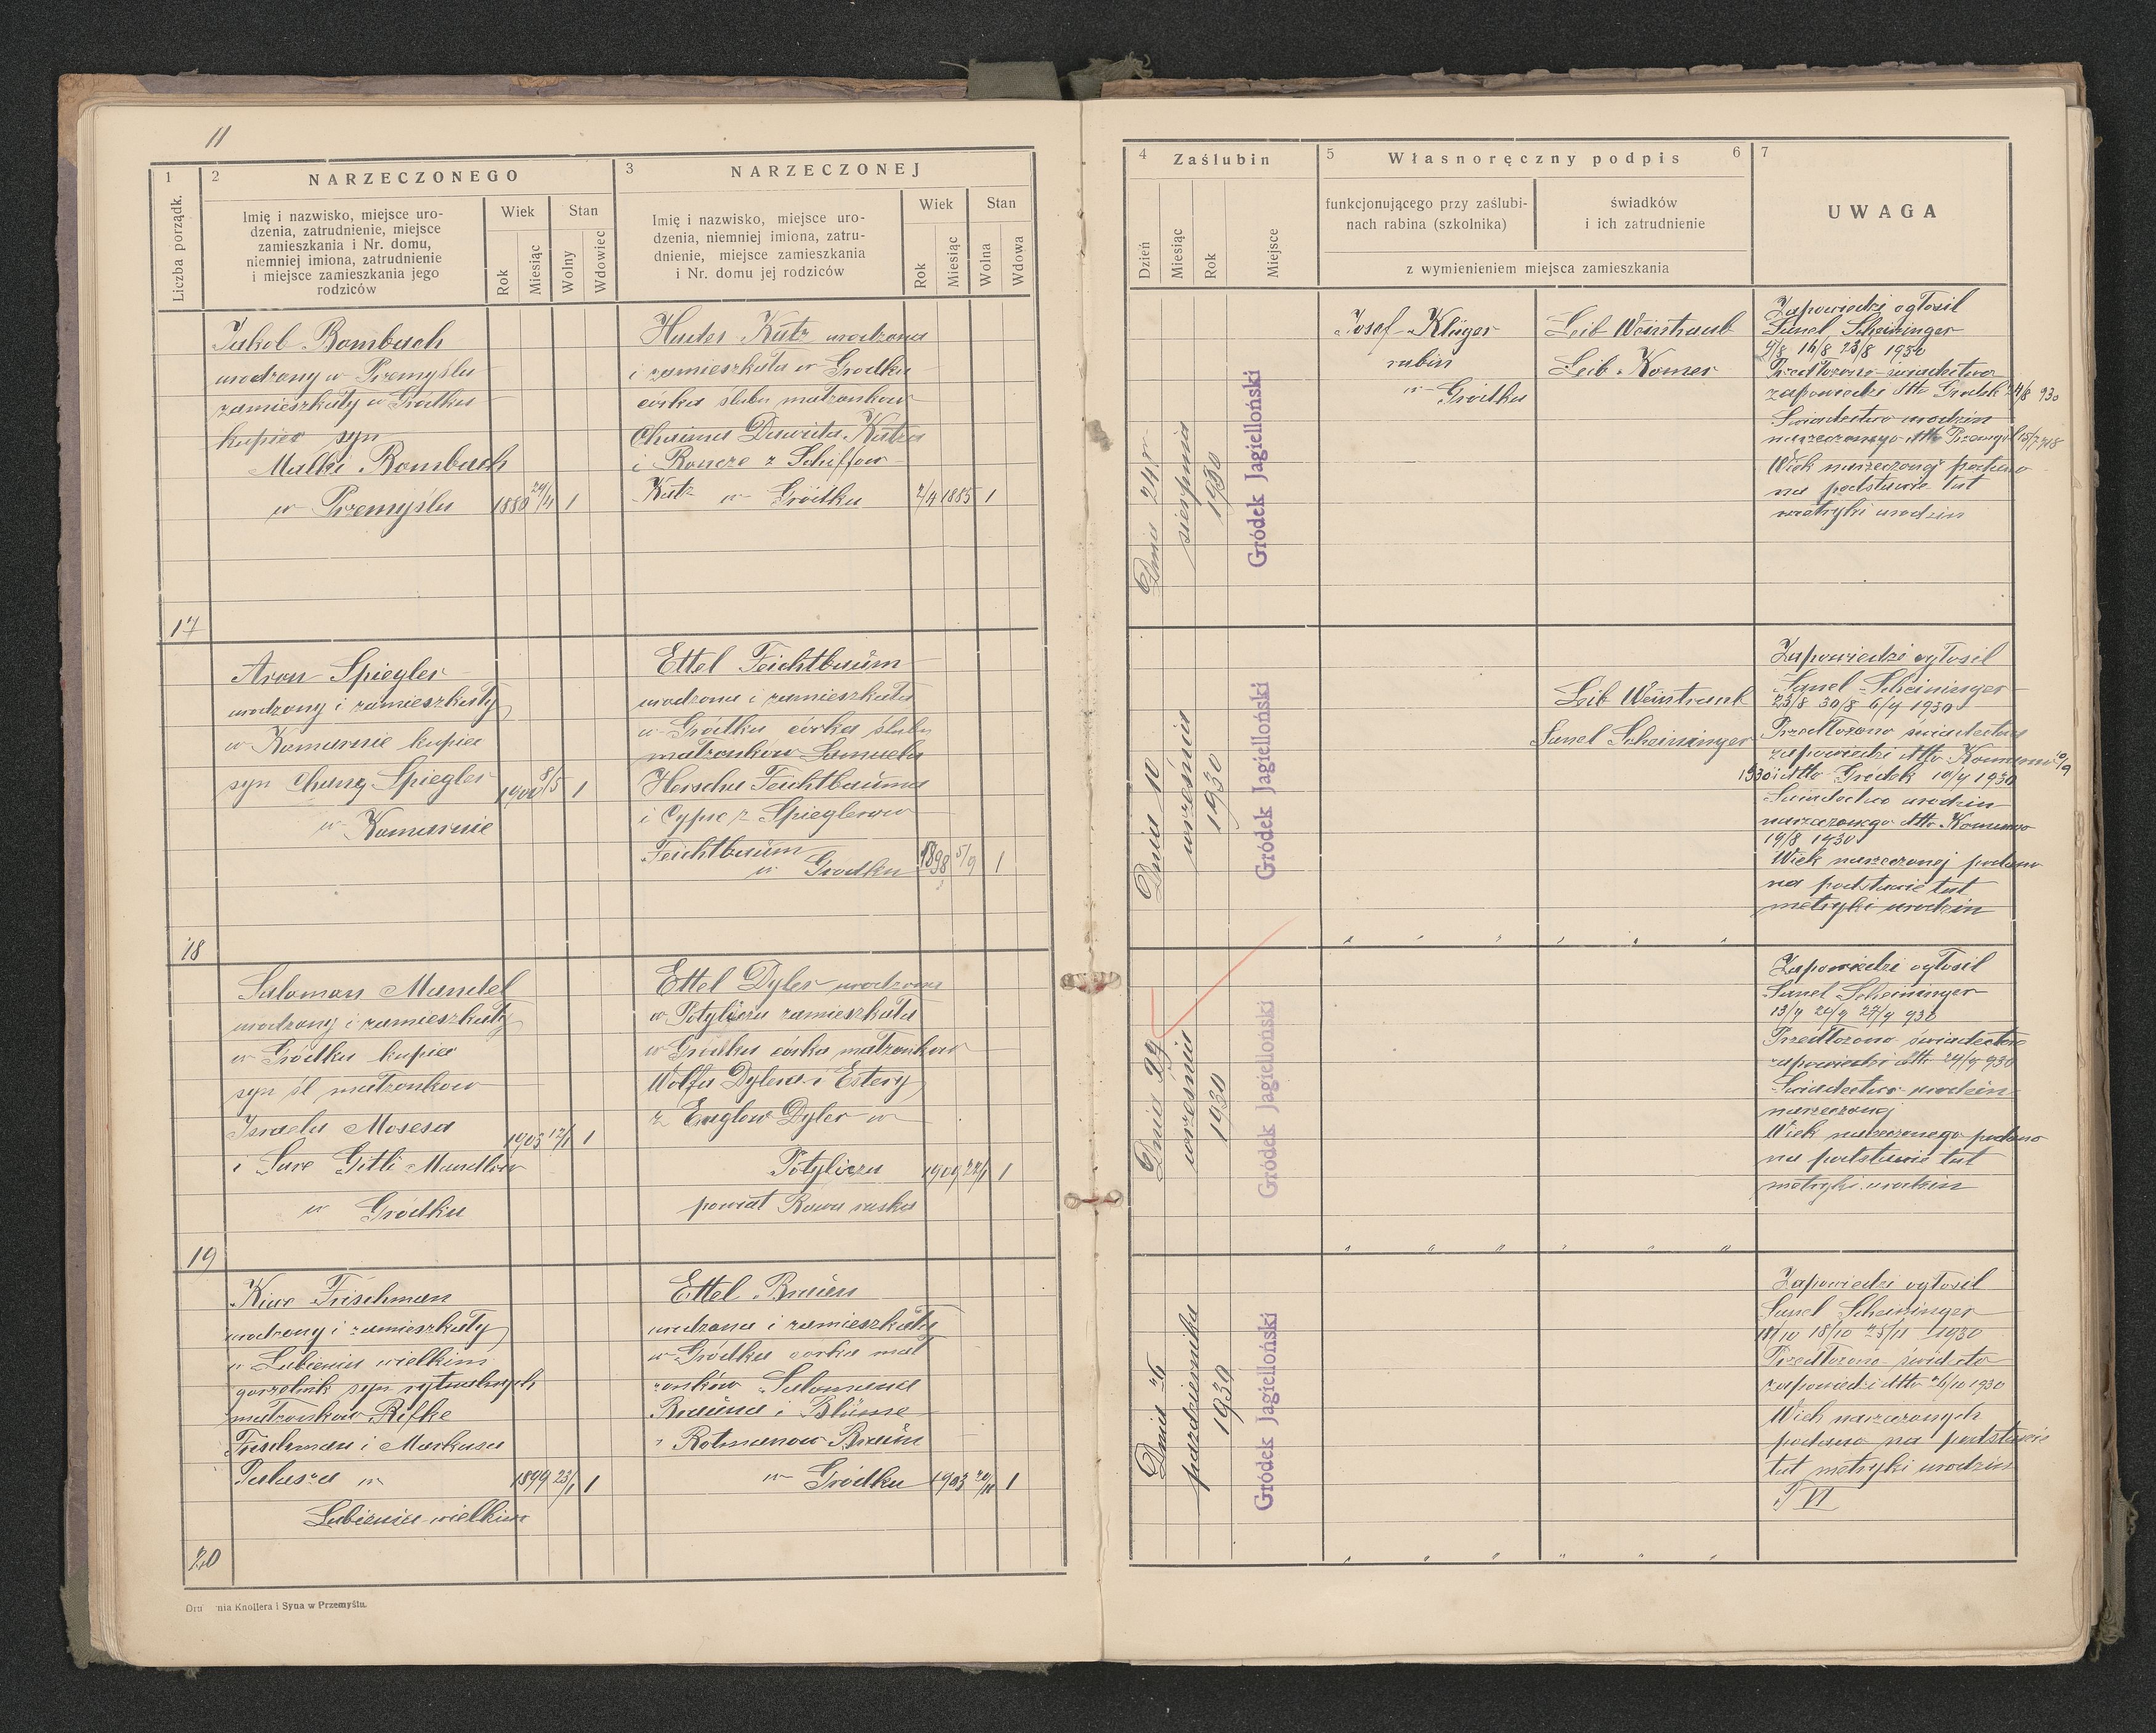 11
1
2
NARZECZONEGO
3
NARZECZONEJ
Liczba porządk.
Imię i nazwisko, miejsce uro-
dzenia, zatrudnienie, miejsce
zamieszkania i Nr. domu,
niemniej imiona, zatrudnienie
i miejsce zamieszkania jego
rodziców
Wiek
Stan
Rok
Miesiąc
Wolny
Wdowiec
Imię i nazwisko, miejsce uro-
dzenia, niemniej imiona, zatru-
dnienie, miejsce zamieszkania
i Nr. domu jej rodziców
Wiek
Stan
Rok
Miesiąc
Wolna
Wdowa
Jakob Bombach
urodzony w Przemyślu
zamieszkały w Gródku
kupiec syn
Malki Bombach
w Przemyślu 1880 24/4 1
Hudes Katz urodzona
i zamieszkała w Gródku
córka ślubn małżonkow
Chaima Dawida Katza
i z Schiffow
Katz w Gródku 2/4 1885 1
17
Aron Spiegler
urodzony i zamieszkały
w Komarnie kupiec
syn Spiegler 1900 8/5 1
w Komarnie
Ettel Feichtbaum
urodzona i zamieszkała
w Gródku córka ślubn
małżonkow Samuela
Herscha Feichtbauma
i Cypre z Spieglerow
Feichtbaum
w Gródku 1898 5/9 1
18
Saloman Mandel
urodzony i zamieszkały
w Gródku kupiec
syn śl małżonkow
Izraela Mosesa 1903 12/1 1
i Sare Gitli Mandlow
w Gródku
Ettel Dyler urodzona
w Potyliczu zamieszkała
w Gródku córka małżonkow
Wolfa Dylera i Estery
z Englow Dyler w
Potyliczu 1909 22/1 1
powiat Rawa ruska
19
Kiwe Frischman
urodzony i zamieszkały
w Lubieniu wielkim
gorzelnik syn rytualnych
małżonkow Rifke
Frischman i Markusa
w 1899 23/1 1
Lubieniu wielkim
Ettel Braun
urodzona i zamieszkała
w Gródku corka mał
żonków Salomana
Brauna i Blume
z Rotmanow Braun
w Gródku 1903 20/11 1
20
Drukarnia Knollera i Syna w Przemyślu.
4
Zaślubin
5
Własnoręczny podpis
6
7
Dzień
Miesiąc
Rok
Miejsce
funkcjonującego przy zaślubi-
nach rabina (szkolnika)
świadków
i ich zatrudnienie
z wymienieniem miejsca zamieszkania
UWAGA
Dnia 24
sierpnia
1930
Gródek Jagielloński
Josef Kluger
rabin
w Gródku
Leib Weintraub
Leib Komer
Zapowiedzi ogłosil
Sanel Scheininger
9/8 16/8 23/8 1930
Przedłożono świadectwo
zapowiedzi dtto Gródek 24/8 930
Świadectwo urodzin
narzeczonego dtto Przemyśl
Wiek narzeczonej podano
na podstawie tut
metryki urodzin
Dnia 10
września
1930
Gródek Jagielloński
Leib Weintraub
Sanel Scheininger
Zapowiedzi ogłosil
Sanel Scheininger
23/8 30/8 6/9 1930
Przedłożono świadectwa
zapowiedzi dtto Komarno 10/9
1930 i dtto Gródek 10/9 1930
Świadectwo urodzin
narzeczonego dtto Komarno
19/8 1930
Wiek narzeczonej podano
na podstawie tut
metryki urodzin
" " " " " "
Dnia 29
września
1930
Gródek Jagielloński
Zapowiedzi ogłosil
Sanel Scheininger
13/9 20/9 27/9 930
Przedłożono świadectwo
zapowiedzi dtto 29/9 930
Świadectwo urodzin
narzeczonej
Wiek narzeczonego podano
na podstawie tut
metryki urodzin
" " " " " "
Dnia 26
października
1930
Gródek Jagielloński
Zapowiedzi ogłosil
Sanel Scheininger
11/10 18/10 25/11 1930
Przedłożono świadctwo
zapowiedzi dtto 26/10 1930
Wiek narzeczonych
podano na podstawie
tut metryki urodzin
T VI
" " " " " "